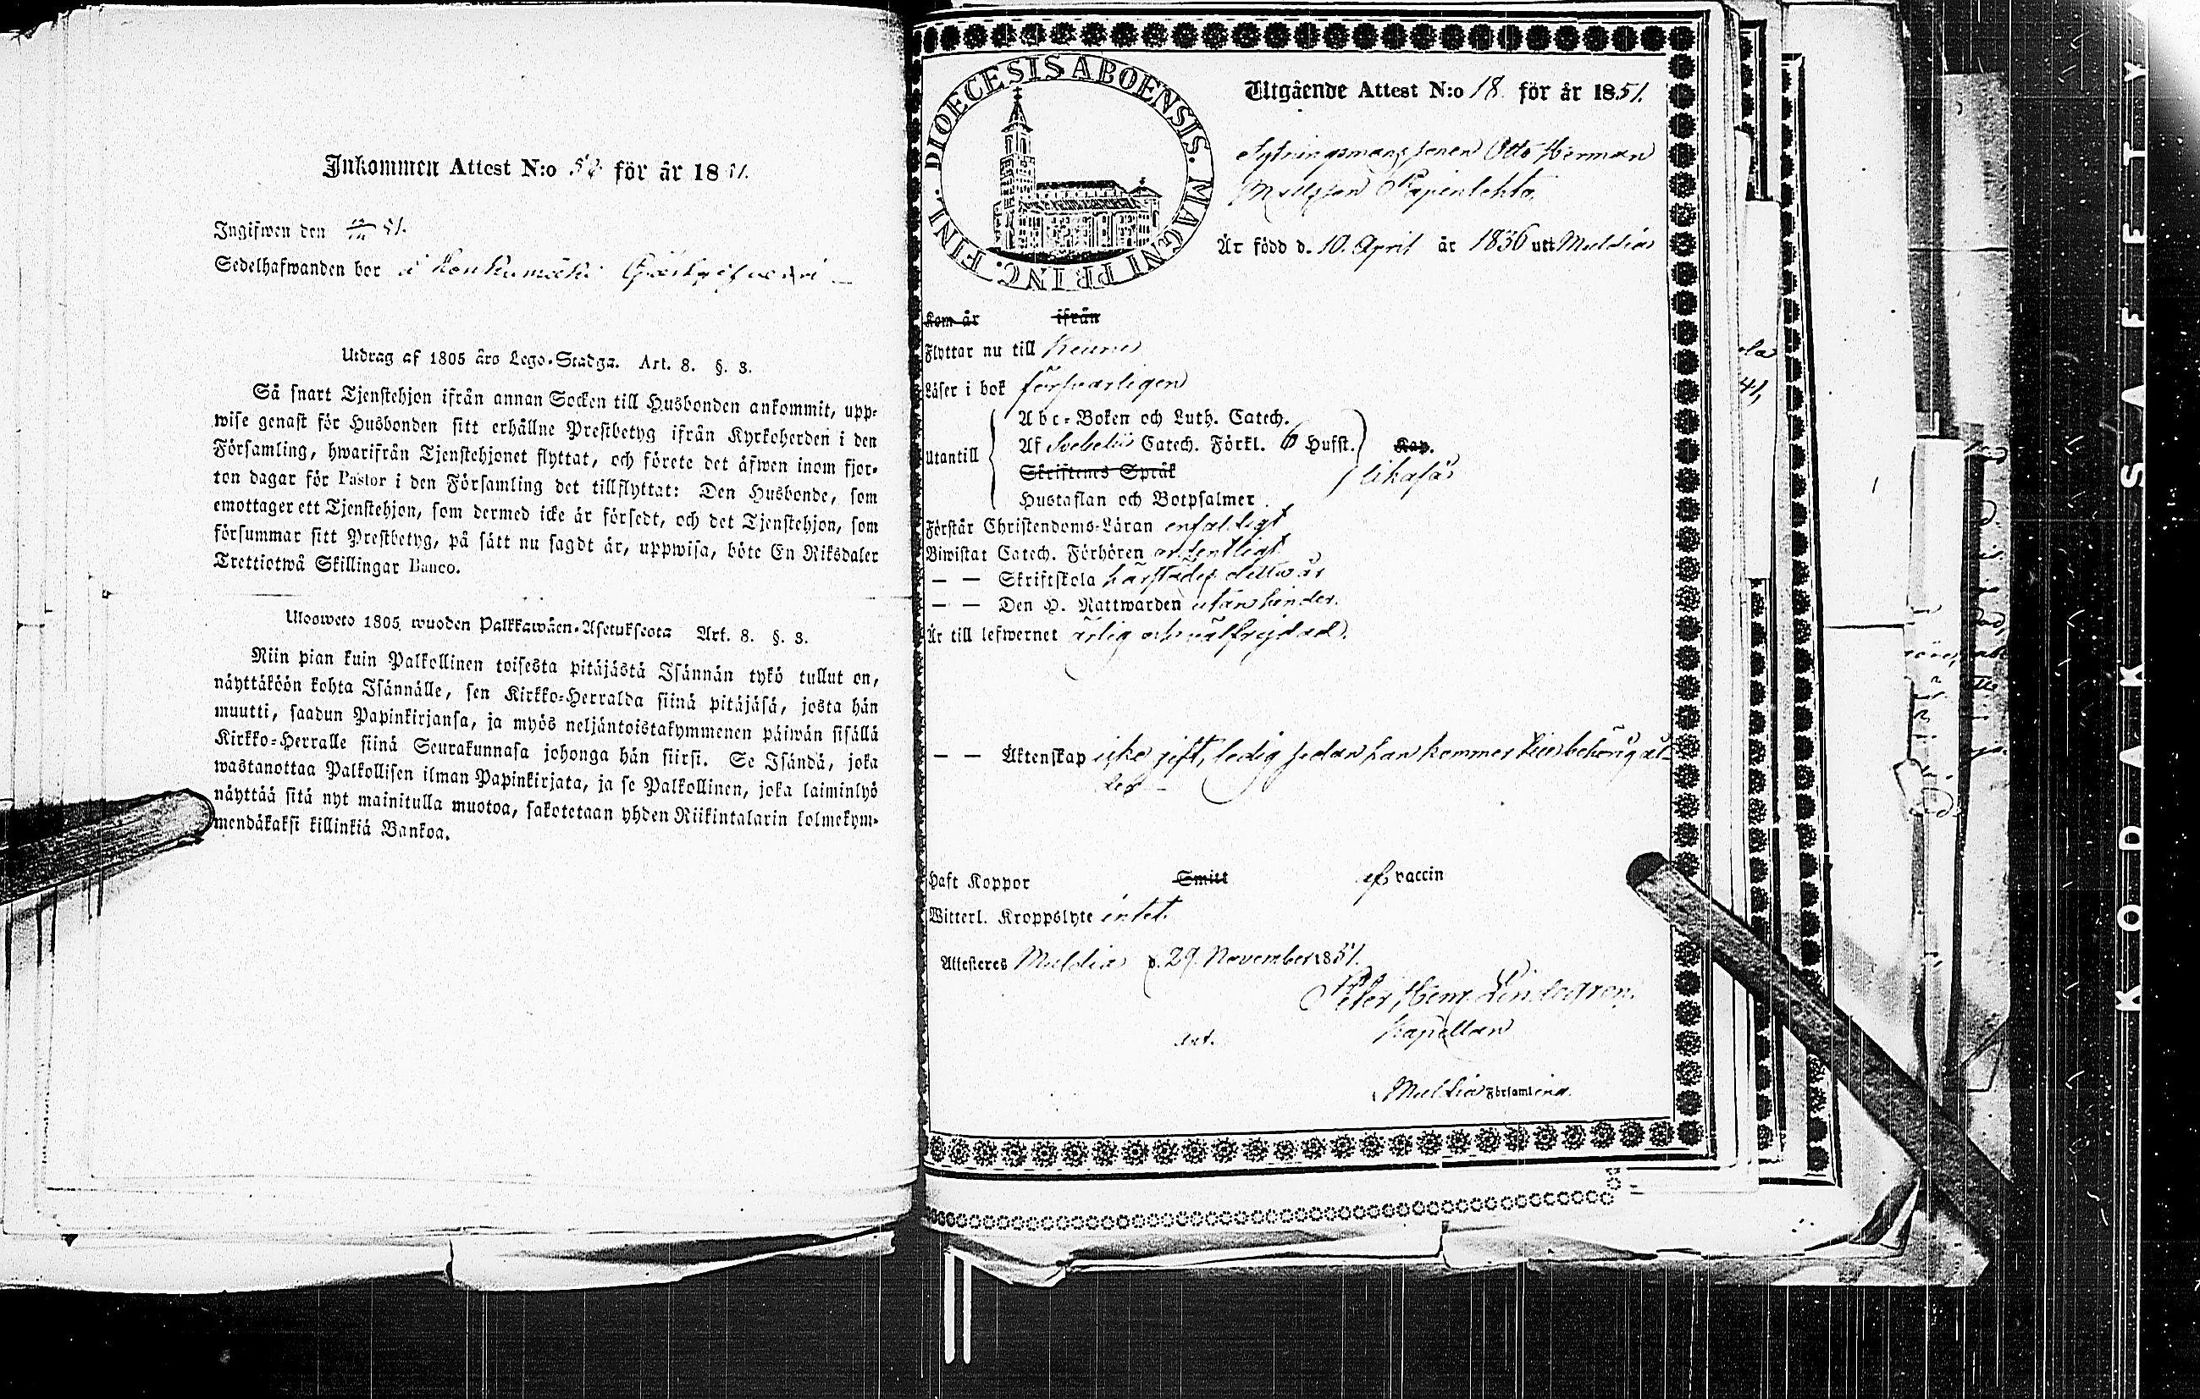 Inkommen Attest N:o 52 för år 1851.
Ingifwen den 51.
Sedelhafwanden bor å Koukumäki Gästgifveri
Utdrag af 1805 års Lego-Stadga. Art. 8. §. 3.
Så snart Tjenstehjon ifrån annan Socken till Husbonden ankommit, upp-
wise genast för Husbonden sitt erhållne Prestbetyg ifrån Kyrkoherden i den
Församling, hwarifrån Tjenstehjonet flyttat, och förete det äfwen inom fjor-
ton dagar för Pastor i den Församling det tillflyttat: Den Husbonde, som
emottager ett Tjenstehjon, som dermed icke är försedt, och det Tjenstehjon, som
försummar sitt Prestbetyg, på sätt nu sagdt är, uppwisa, böte En Riksdaler
Trettiotwå Skillingar Banco.
Ulosweto 1805 wuoden Palkkawäen-Asetuksesta Art. 8. §. 3.
Niin pian kuin Palkollinen toisesta pitäjästä Isännän tykö tullut on,
näyttäköön kohta Isännälle, sen Kirkko-Herralda siinä pitäjäsä, josta hän
muutti, saadun Papinkirjansa, ja myös neljäntoistakymmenen päiwän sisällä
Kirkko-Herralle siinä Seurakunnasa johonga hän siirsi. Se Isändä, joka
wastanottaa Palkollisen ilman Papinkirjata, ja se Palkollinen, joka laiminlyö
näyttää sitä nyt mainitulla muotoa, sakotetaan yhden Riikintalarin kolmekym-
mendäkaksi killinkiä Bankoa.
DIOECESIS ABOENSIS. MAGNI PRINC. FINL.
Utgående Attest N:o 18 för år 1851.
Sytningsmans sonen Otto Herman
Mattsson Papinlehto,
Är född d. 10. April år 1836 uti Muldia
Kom år ifrån
Flyttar nu till Keuru
Läser i bok försvarligen
Utantill
Abc-Boken och Luth. Catech.
Af Svebelii Catech. Förkl. 6 Hufst. Kap.
Skriftenes Språk
likaså
Hustaflan och Botpsalmer
Förstår Christendoms-Läran enfaldigt
Biwistat Catech. Förhören ordentligt
— — Skriftskola härstädes detta år
— — Den H. Nattwarden utan hinder.
Är till lefwernet ärlig och välfrejdad.
— — Äktenskap icke gift, ledig sedan han kommer till behörig ål-
der
Haft Koppor Smitt af vaccin
Witterl. Kroppslyte intet.
Attesteras Muldia d. 29. November 1851.
Peter Henr. Lindegren.
Kapellan
Muldia Församling.
KODAK SAFETY